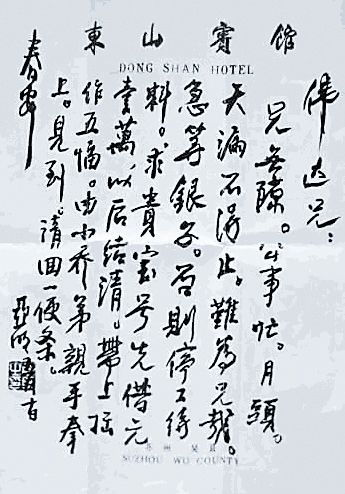 東山賓館
DONG SHAN HOTEL
偉达兄：
兄無隙。公事忙。月頭。
天漏不得止。難為兄
急等銀子。否則停工待
料。求貴宝号先借元
壹萬以后结清。帶上拙
作五幅。由小乔弟親手奉
上。見到。請回一便条。
亚明
春安
苏州 吴县
SUZHOU WU COUNTY